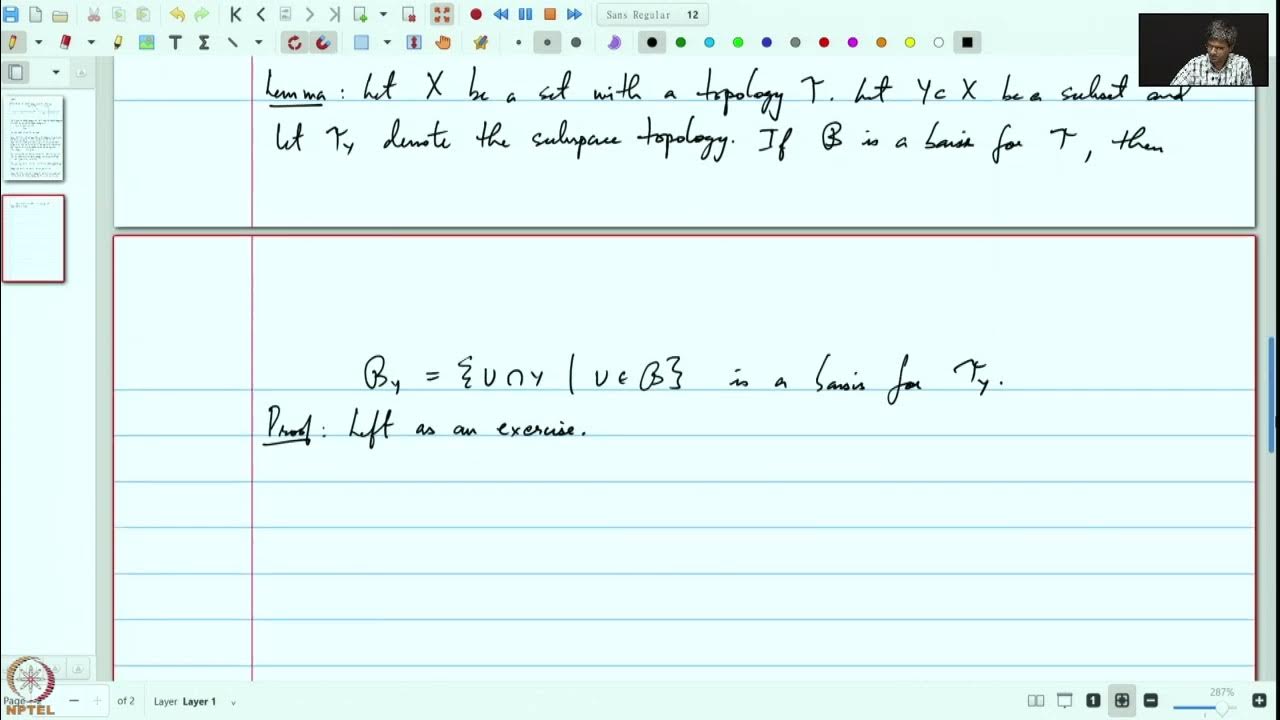 Sans Regular 12
Lemma : Let X be a set with a topology τ. Let Y ⊂ X be a subset and
let τ_Y denote the subspace topology. If B is a basis for τ, then
B_Y = {U ∩ Y | U ∈ B} is a basis for τ_Y.
Proof : Left as an exercise.
NPTEL
Page of 2 Layer Layer 1 287%